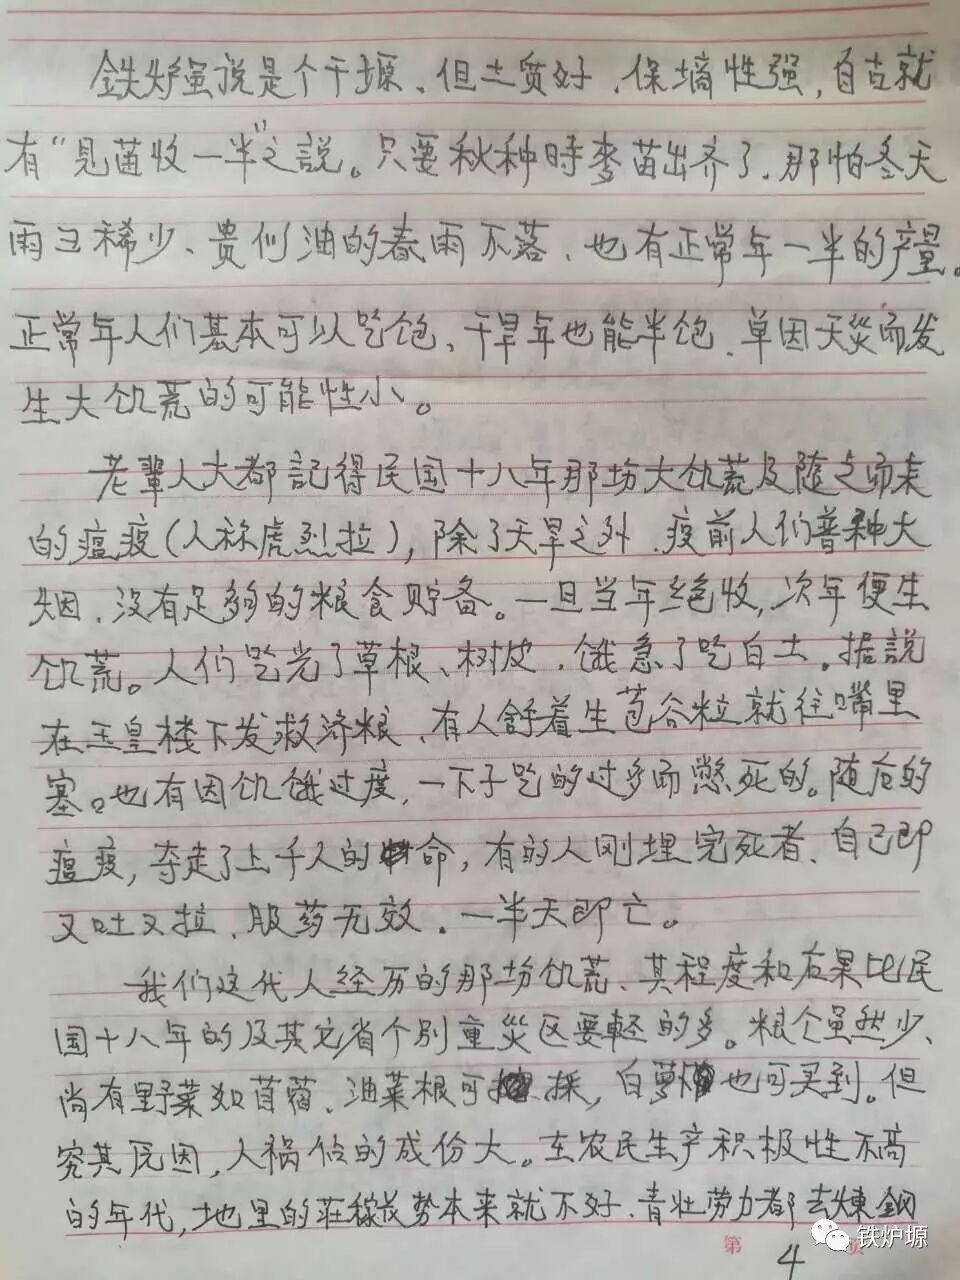 鉄炉虽说是个干塬、但土质好、保墒性强，自古就
有“見苗收一半”之説。只要秋种時麥苗出齐了、那怕冬天
雨ヨ稀少、贵似油的春雨不落、也有正常年一半的产量。
正常年人们基本可以吃饱、干旱年也能半饱、单因天災而发
生大饥荒的可能性小。
老輩人大都記得民国十八年那场大饥荒及随之而来
的瘟疫（人称虎烈拉），除了天旱之外、疫前人们普种大
烟、没有足够的粮食贮备。一旦当年绝收，次年便生
饥荒。人们吃光了草根、树皮、饿急了吃白土。据説
在玉皇楼下发救济粮、有人舒着生苞谷粒就往嘴里
塞。也有因饥饿过度，一下子吃的过多而憋死的。随后的
瘟疫，夺走了上千人的命，有的人刚埋完死者、自己即
又吐又拉、服药无效、一半天即亡。
我们这代人经历的那场饥荒、其程度和后果比民
国十八年的及其它省个别重災区要輕的多。粮仓虽然少、
尚有野菜如苜蓿、油菜根可採，白萝卜也可买到。但
究其原因，人祸佔的成份大。在农民生产积极性不高
的年代，地里的荘稼成势本来就不好、青壮劳力都去煉鋼
第4页
铁炉塬